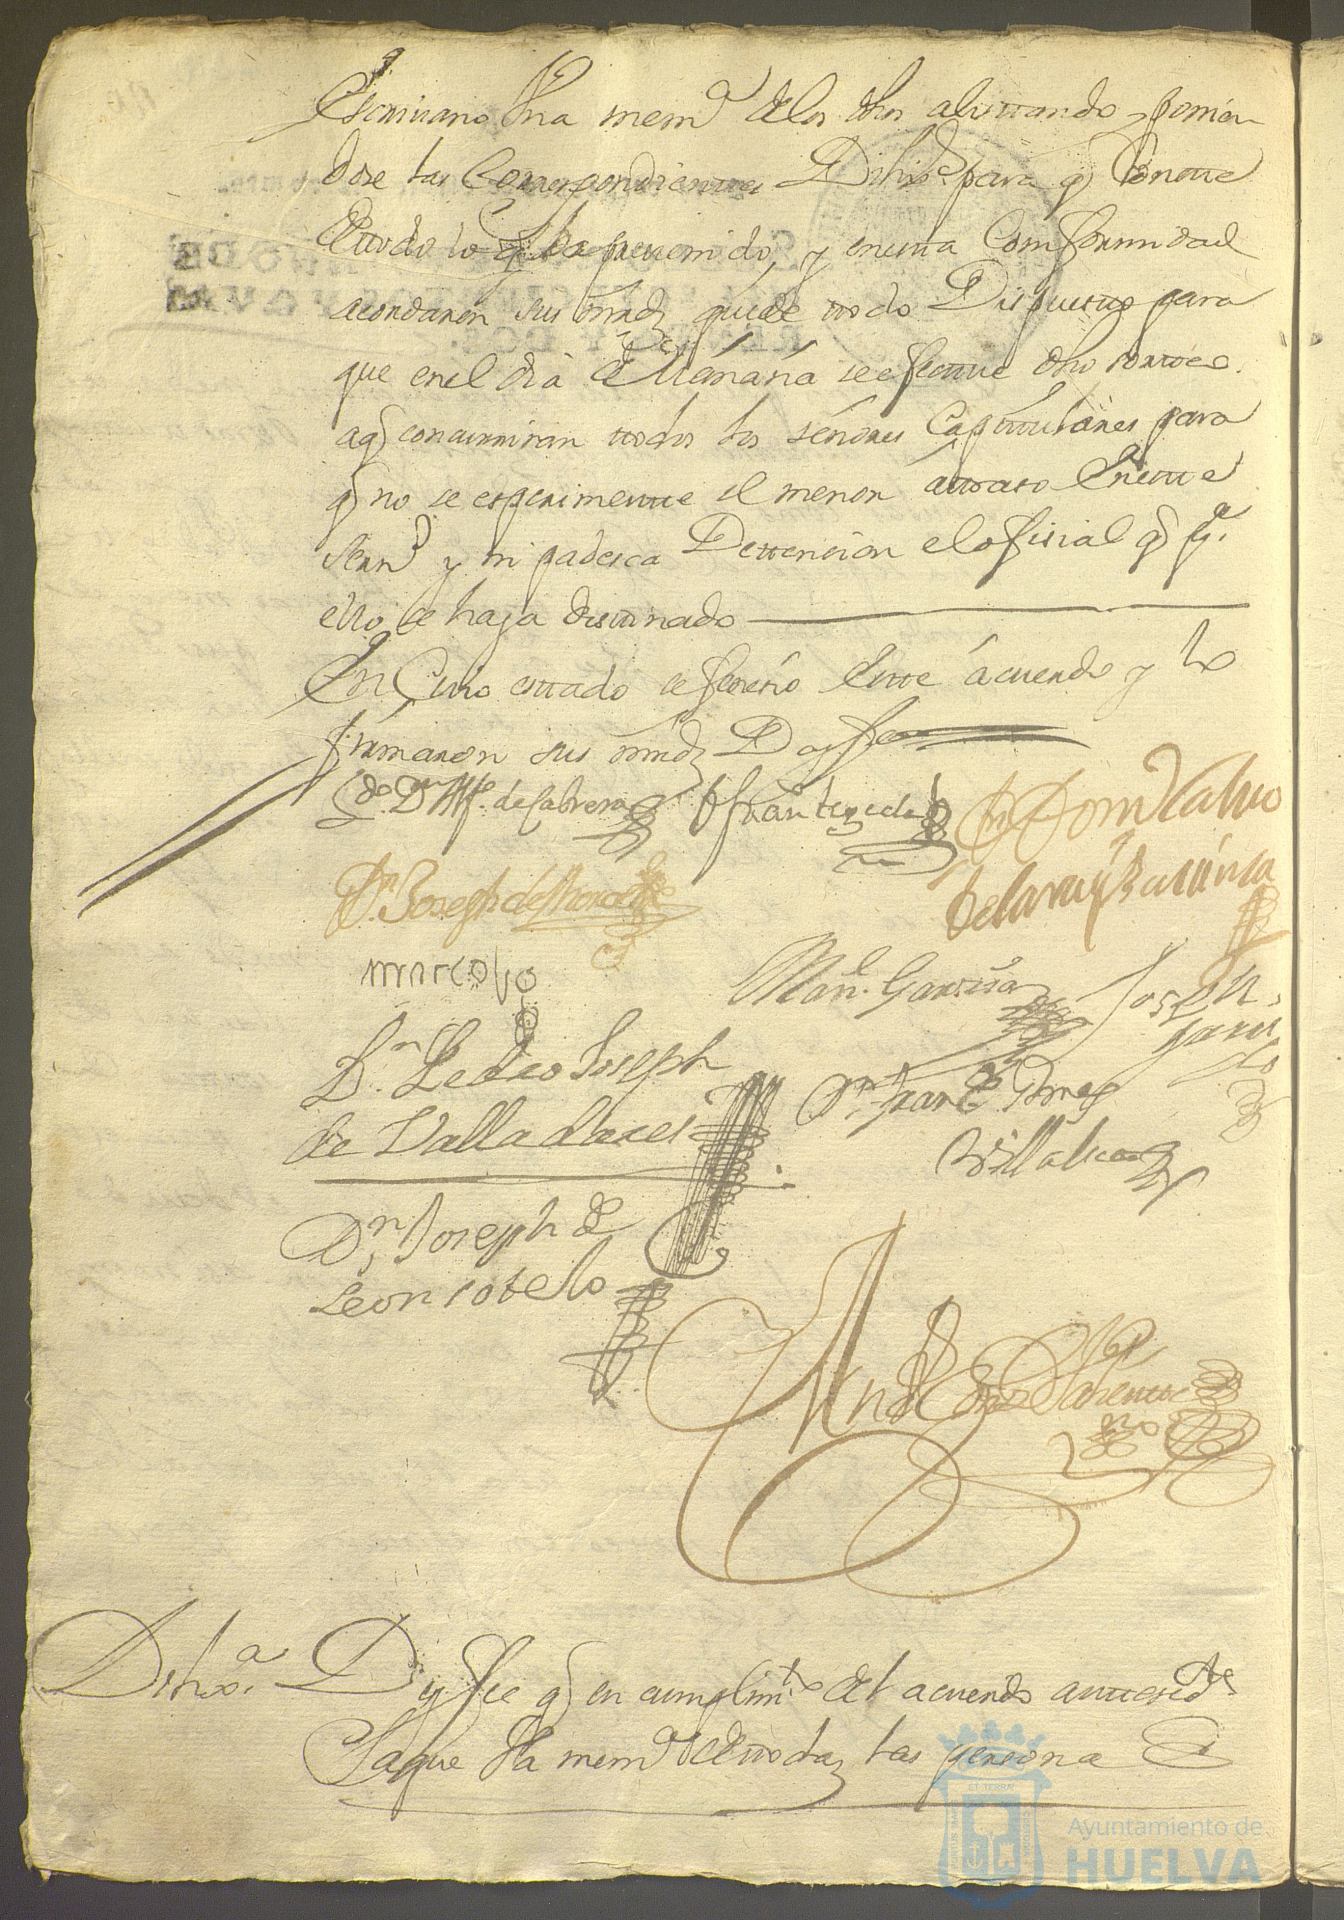 Escrivano Vna mem.a de los dhos alistando y ponien
dose las Correspondientes Dilix.s para q Conste
de todo lo q ba prevenido, y en esta Comformidad
acordaron sus mrds quede todo Dispuesto para
que en el dia de Mañana se efectue dho sorteo.
a q concurriran todos los señores Capitulares para
q no se esperimente el menor atraso En este
Serv.o y ni padesca Detencion el ofisial q p.a
ello se haya destinado
En Cuio estado se serró Este acuerdo y lo
firmaron sus mrds Doy fee
D.n Joseph de
marcos
Man.l Garzia
Joseph
D.n Pedro Joseph
de Valladares
D.n Fran.co
Villalva
D.n Joseph de
Leon sotelo
Dilix.a Doy fee q en cumplim.to del acuerdo antesed.te
Saque Vna mem.a de todas las persona
Ayuntamiento de
HUELVA